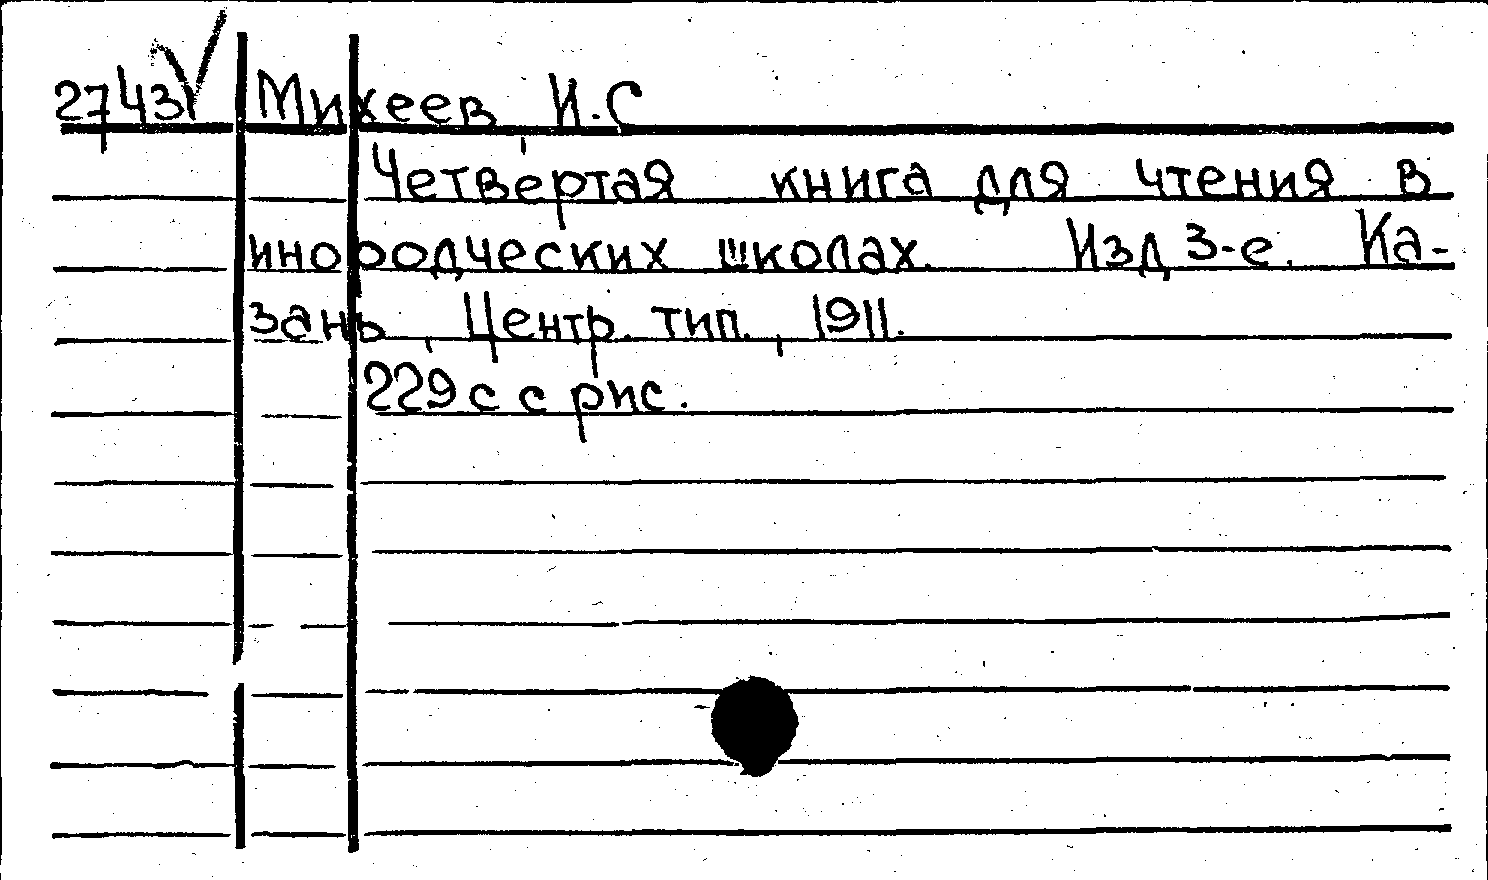 2743 V Михеев, И.С
Четвертая книга для чтения в
инородческих школах. Изд 3-е. Ка-
зань, Центр. тип., 1911.
229 с с рис.